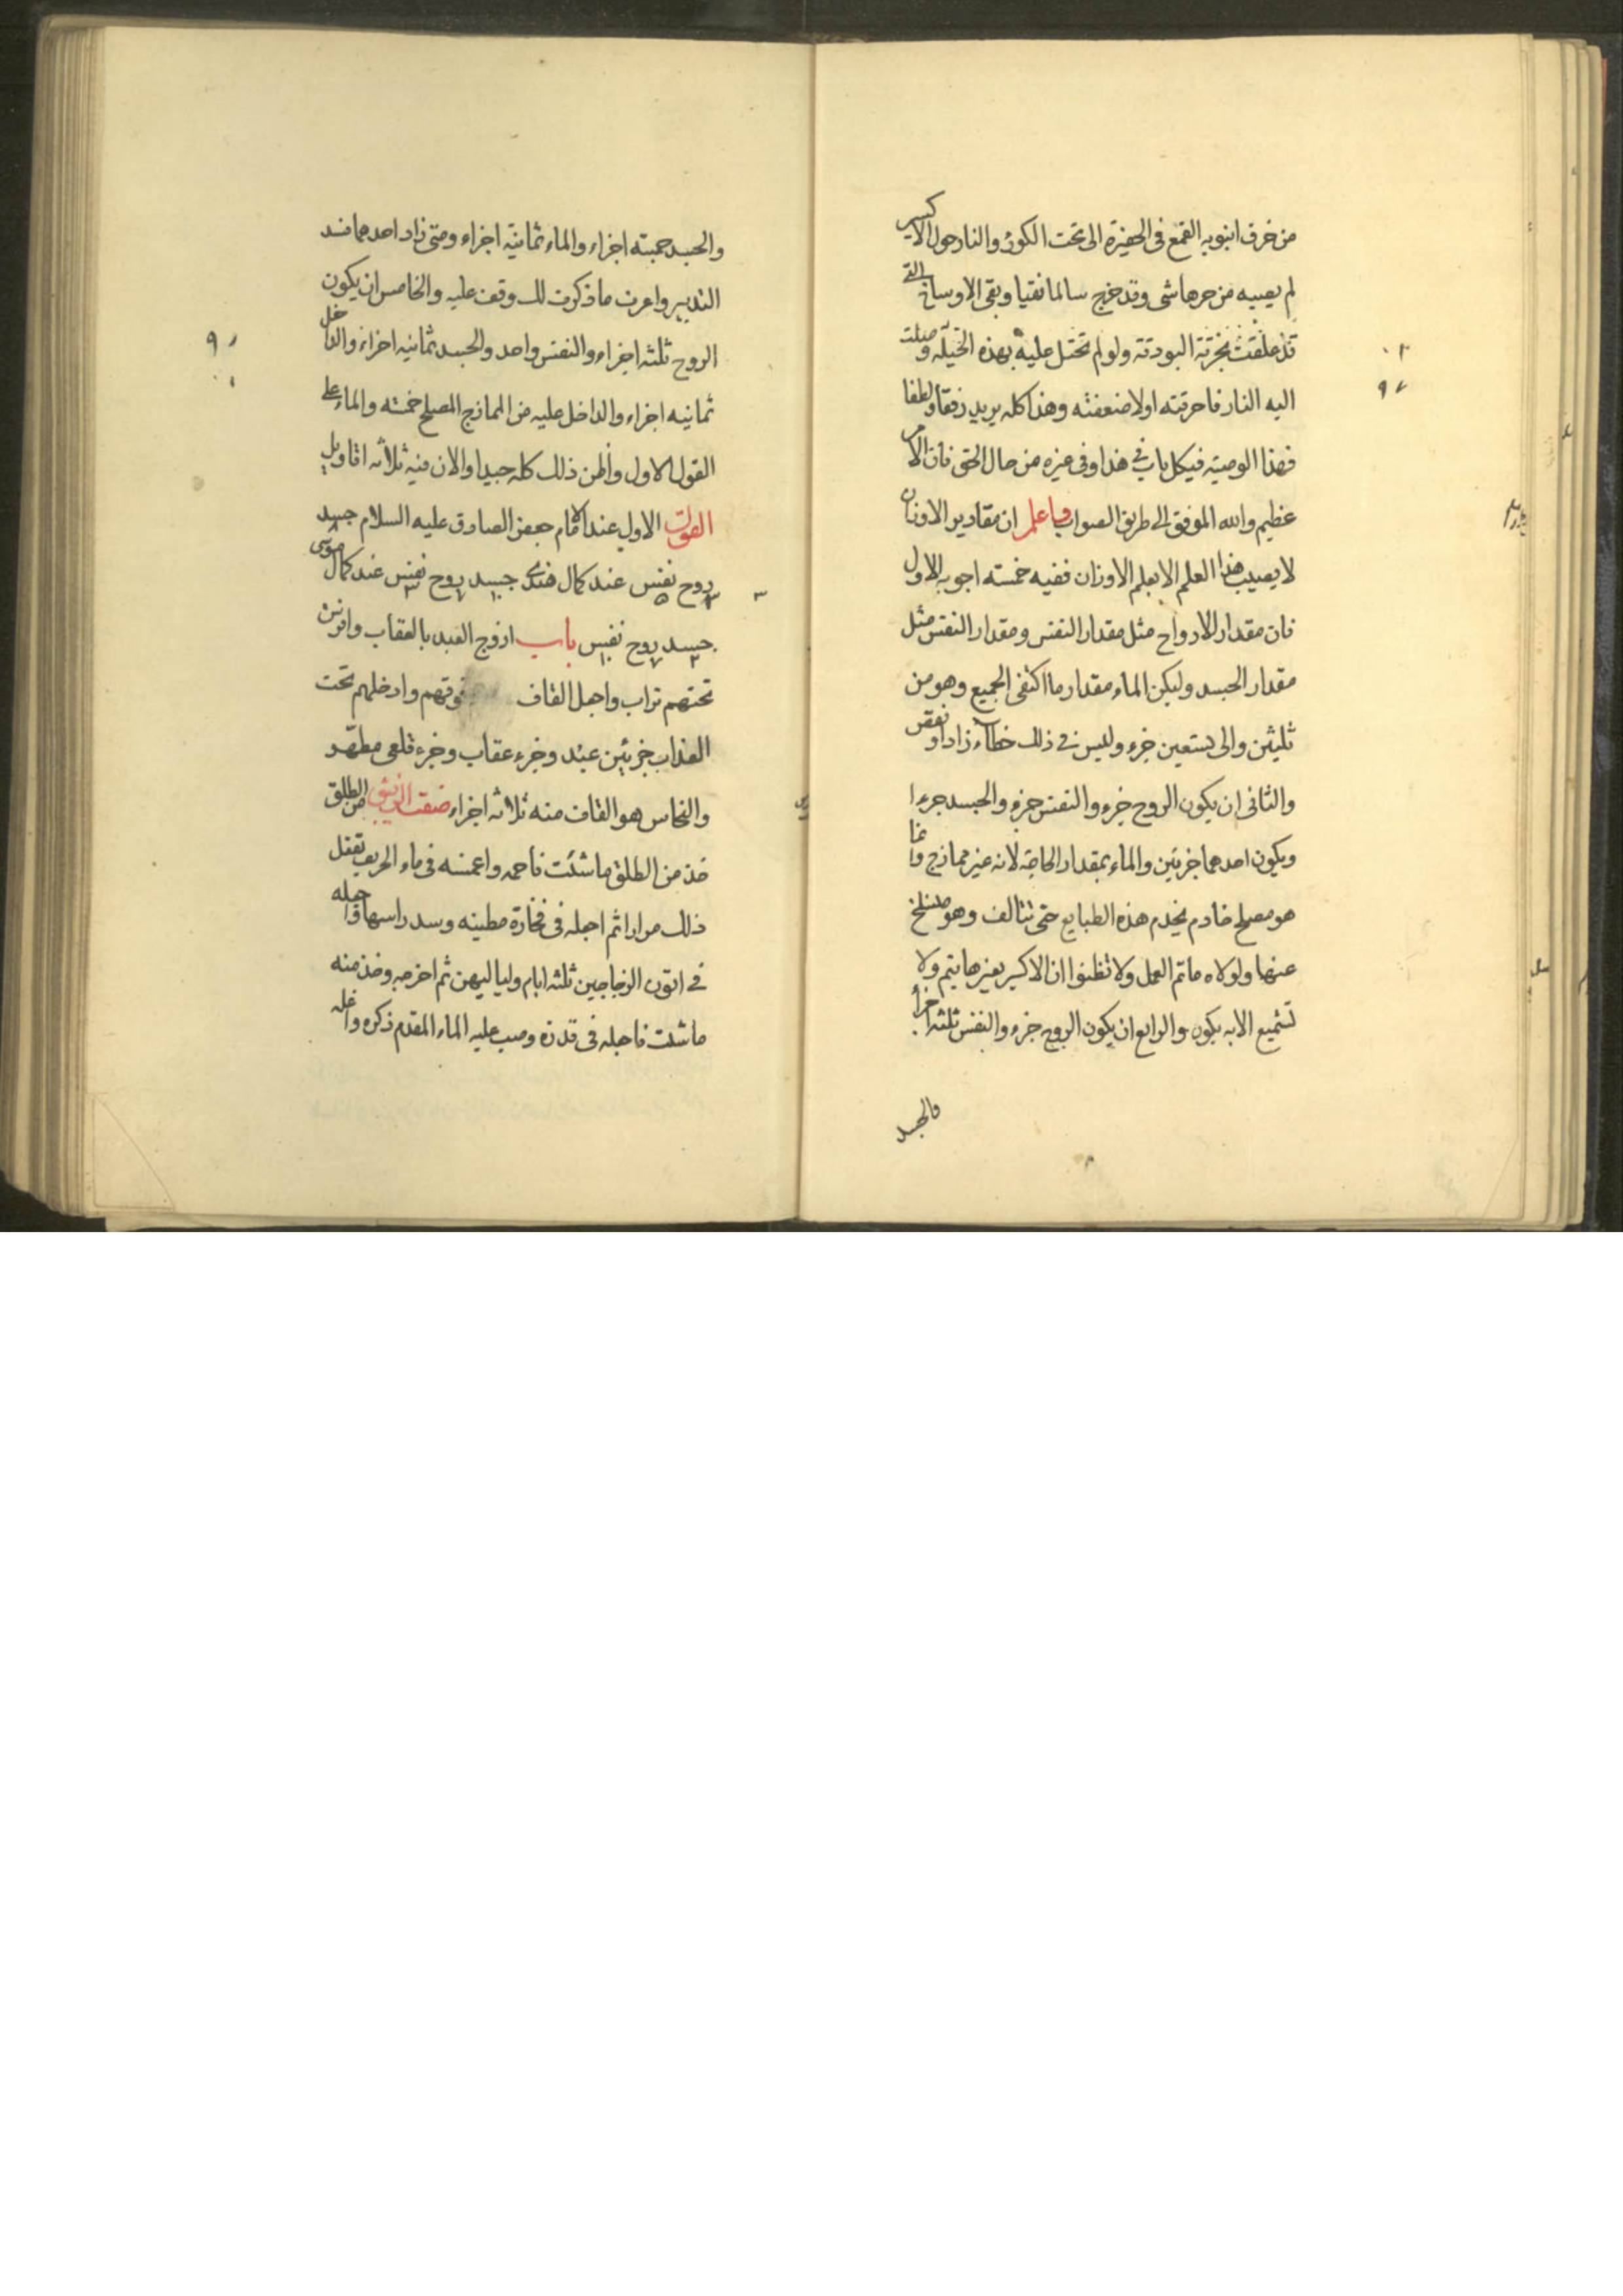 من خرف انبوبه القمع فى الحفيرة الى تحت الكوز والنار حول الاكسير
لم يصيبه من حرها شى وقد خرج سالما نقيا وبقى الاوساخ التى
قد علقت بخرقة البودقة ولو لم تحتل عليه بهذه الحيلة وصلت
اليه النار فاحرقته اولا ضعفته وهذا كله يريد رفقا ولطفا
فهذا الوصية فيكل باب فى هذا وفى غيره من حال الحق فان الامر
عظيم والله الموفق الى طريق الصواب واعلم ان مقادير الاوزان
لا يصيب هذا العلم الا بعلم الاوزان ففيه خمسته اجوبه الاول
فان مقدار الارواح مثل مقدار النفس ومقدار النفس مثل
مقدار الجسد وليكن الماء مقدار ما اكتفى الجميع وهو من
ثليثن والى تسعين جزء وليس فى ذلك خطاء زاد او نقص
والثانى ان يكون الروح جزء والنفس جزء والجسد جزءا
ويكون احدهما جزئين والماء بمقدار الحاجة لانه غير ممازج وانما
هو مصلح خادم يخدم هذه الطبايع حتى تتالف وهو منسلخ
عنها ولولاه ماتم العمل ولا تظنوا ان الاكسير بغيرها يتم ولا
تشميع الا به يكون والرابع ان يكون الروح جزء والنفس ثلثه اجزأ
والجسد
والجسد خمسته اجزاء والماء ثمانية اجزاء ومتى زاد احدهما فسد
التدبير واعرف ما ذكرت لك وقف عليه والخامس ان يكون
الروح ثلثه اجزاء والنفس واحد والجسد ثمانيه اجزاء والداخل
ثمانيه اجزاء والداخل عليه من الممازج المصلح خمسته والماء على
القول الاول واظن ذلك كله جيدا والان فيه ثلاثه اقاويل
القول الاول عند الامام جعفر الصادق عليه السلام جسد
روح نفس عند كمال هندى جسد روح نفس عند كمال موسى
جسد روح نفس باب ازوج العبد بالعقاب وافرش
تحتهم تراب واجعل القاف فوقهم وادخلهم تحت
العذاب جزئين عبد وجزء عقاب وجزء قلعى مطهر
والنحاس هو القاف منه ثلاثه اجزاء صفت الزيبق من الطلق
خذ من الطلق ما شئت فاحمه واغمسه فى ماء الحريف تفعل
ذلك مرارا ثم اجعله فى فخارة مطينه وسد راسها واجعله
فى اتون الزجاجين ثلثه ايام ولياليهن ثم اخرجه وخذ منه
ما شئت فاجعله فى قدره وصب عليه الماء المقدم ذكره واغله